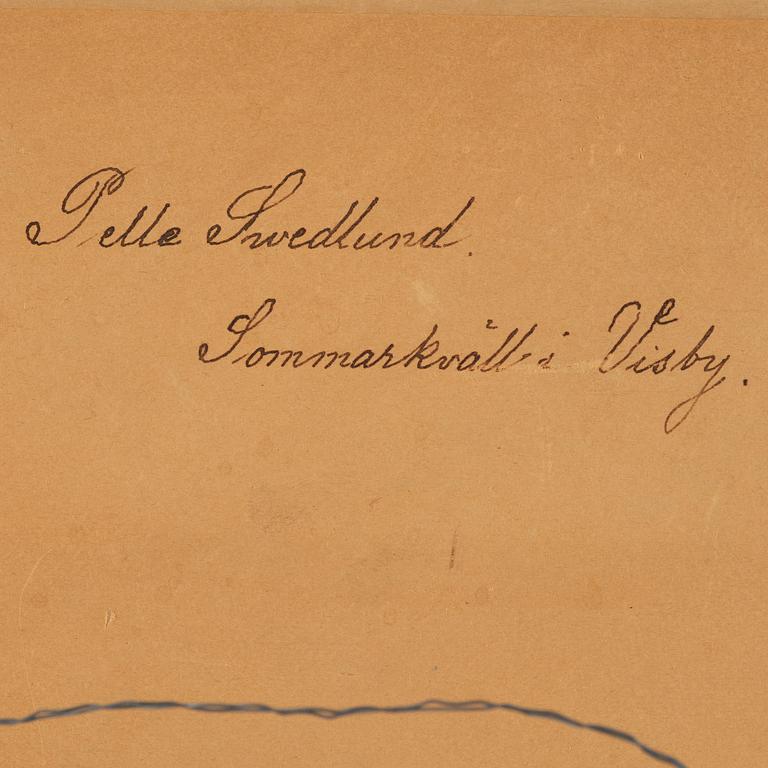 Pelle Swedlund.
Sommarkväll i Visby.